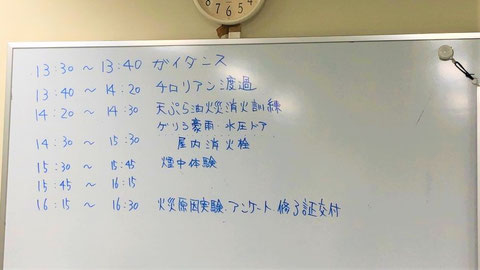 8 7 6 5 4
13:30 ～ 13:40 ガイダンス
13:40 ～ 14:20 チロリアン渡過
14:20 ～ 14:30 天ぷら油火災消火訓練
ゲリラ豪雨・水圧ドア
14:30 ～ 15:30 屋内消火栓
15:30 ～ 15:45 煙中体験
15:45 ～ 16:15
16:15 ～ 16:30 火災原因実験、アンケート、修了証交付